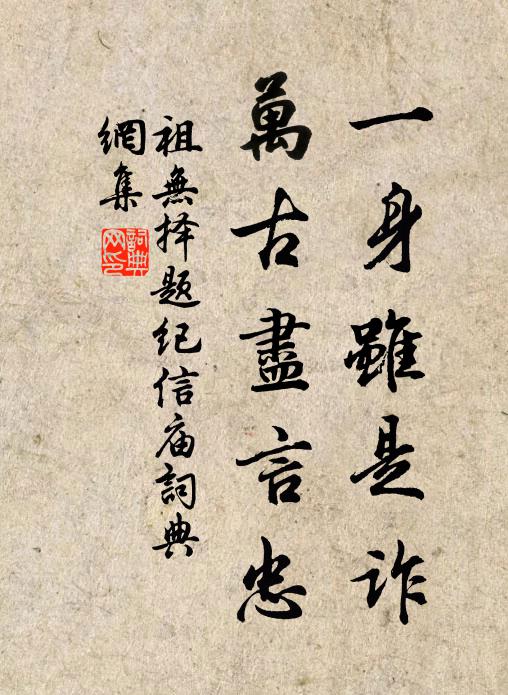 一身雖是詐
萬古盡言忠
祖無择题纪信庙詞典
網集
詞典
网印